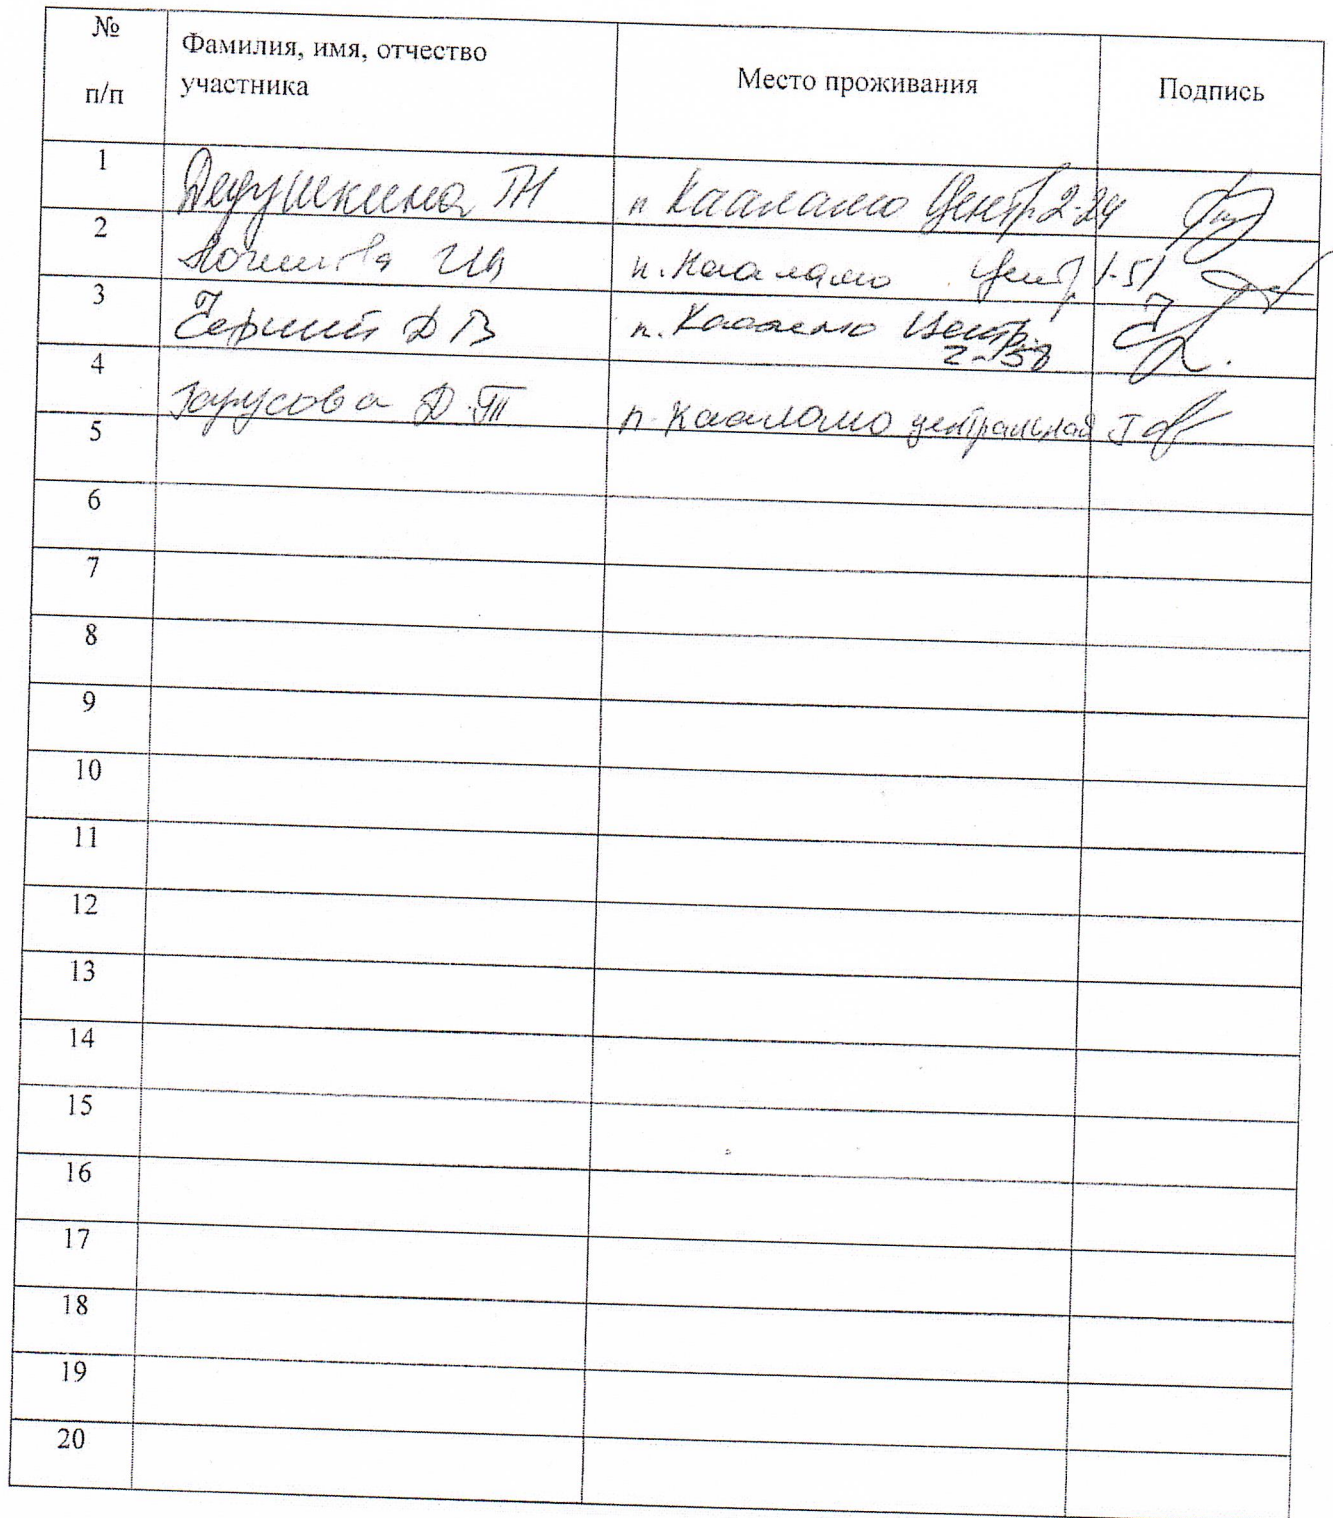 № п/п Фамилия, имя, отчество участника Место проживания Подпись
1 Дедушкина ТН п Кааламо Центр. 2-24
2 ИВ п. Кааламо Центр 1-51
3 Черний Д В п. Кааламо Центр. 2-58
4 Гарусова Д.Т п. Кааламо центральная
5
6
7
8
9
10
11
12
13
14
15
16
17
18
19
20